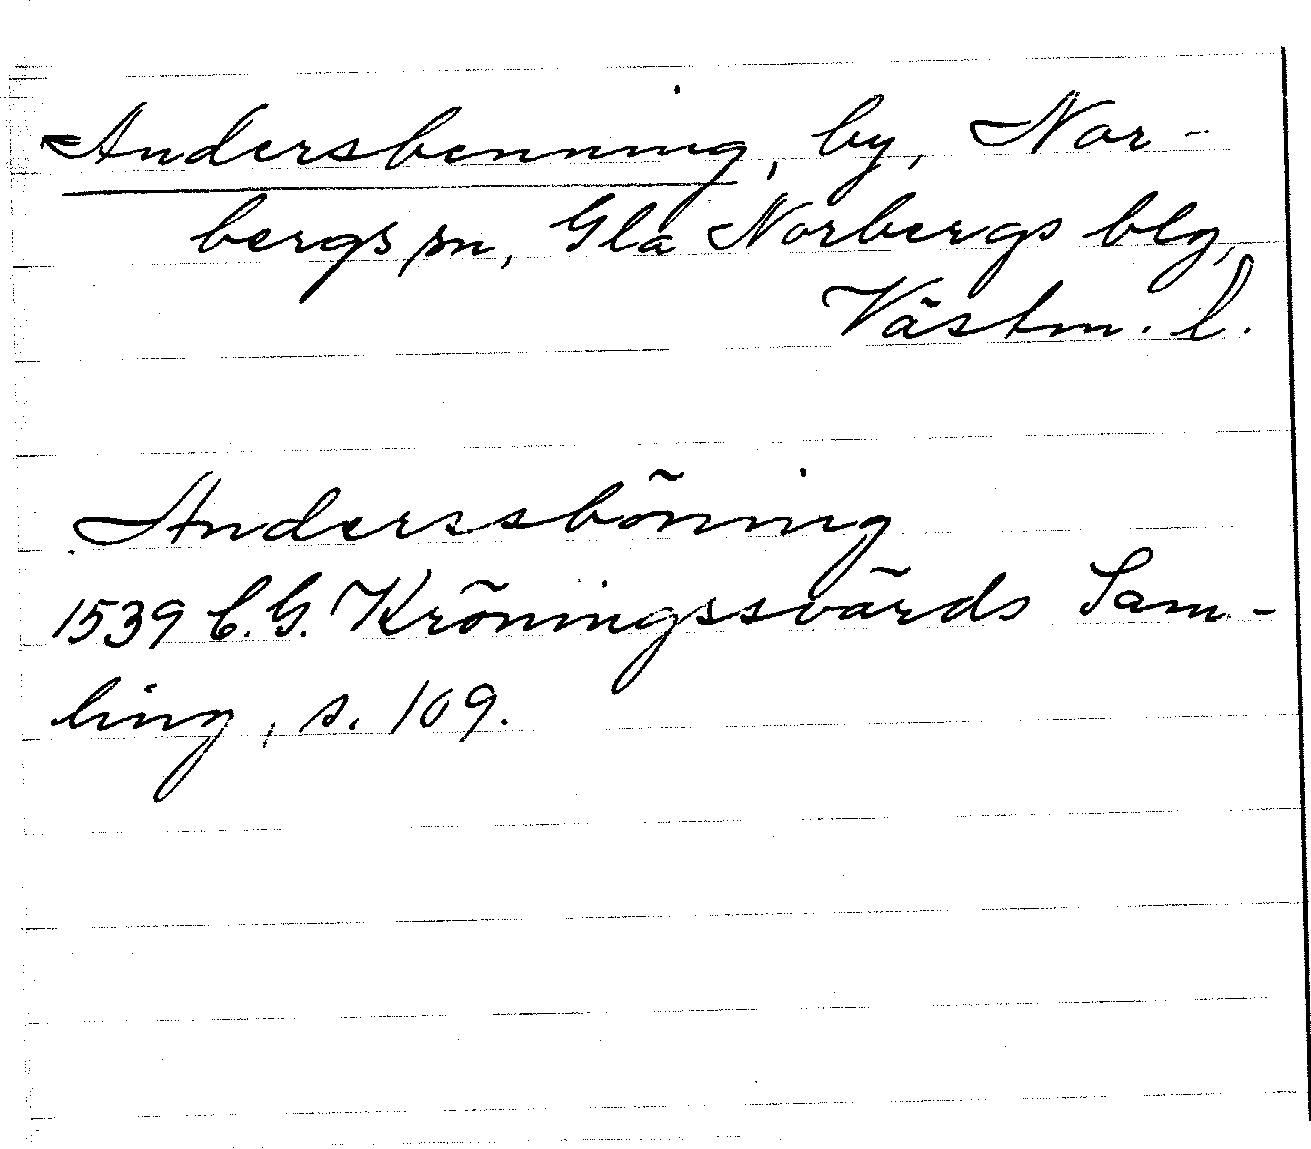 Andersbenning, by, Nor-
bergs sn, Gla Norbergs blg,
Västm. l.
Anderssböning
1539 C.G. Kröningssvärds Sam-
ling, s. 109.